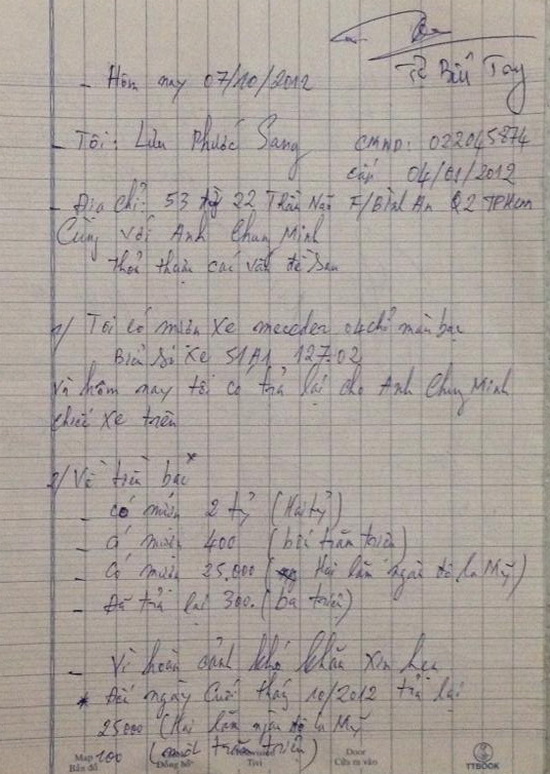 Tờ Biên Tay
- Hôm nay 07/10/2012
- Tôi: Lưu Phước Sang CMND: 022045874
cấp 04/01/2012
- Địa chỉ: 53 22 Trần Não F/Bình An Q2 TPHCM
Cùng với Anh Chung Minh
Thỏa thuận các vấn đề sau
1/ Tôi có mượn xe mecedec 04 chỗ màu bạc
Biển số xe 51A1 127.02
Và hôm nay tôi có trả lại cho Anh Chung Minh
chiếc xe trên
2/ Về tiền bạc
- Có mượn 2 tỷ (Hai tỷ)
- Có mượn 400 (bốn trăm triệu)
- Có mượn 25.000 (Hai lăm ngàn đô la Mỹ)
- Đã trả lại 300. (ba triệu)
- Vì hoàn cảnh khó khăn xin hẹn
* Đến ngày cuối tháng 10/2012 trả lại
25000 (Hai lăm ngàn đô la Mỹ
100 (một trăm triệu)
Map
Bản đồ
Đồng hồ
Door
Cửa ra vào
TTBOOK